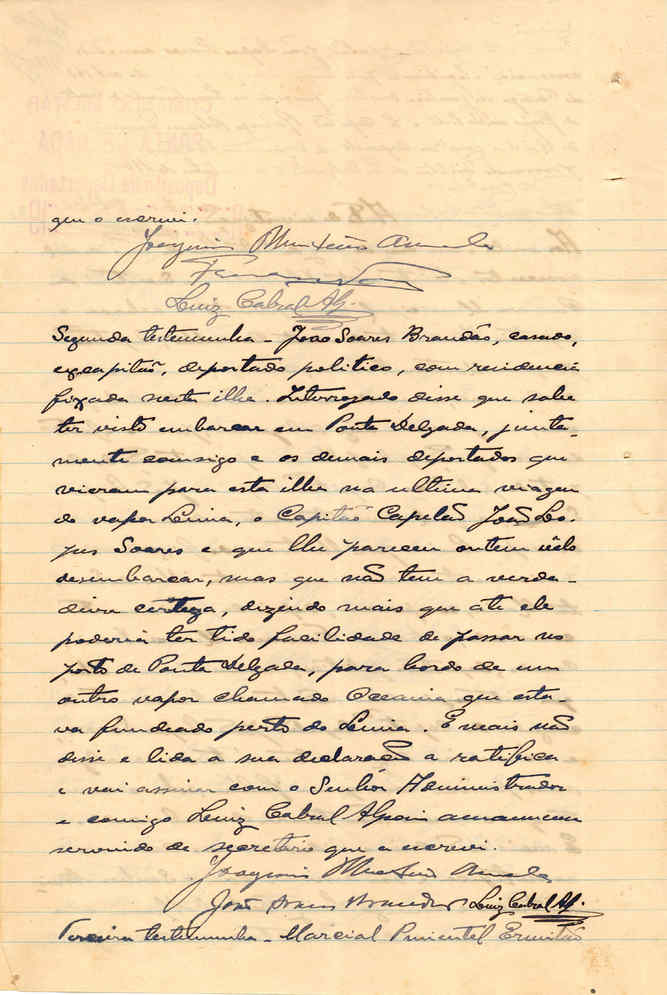 que o escrevi.
Joaquim Monteiro
Luiz Cabral Alp.
Segunda testemunha - João Soares Brandão, casado,
excapitão, deportado politico, com residencia
fixada nesta ilha. Interrogado disse que sabe
ter visto embarcar em Ponta Delgada, junta-
mente comsigo e os demais deportados que
vieram para esta ilha na ultima viagem
do vapor Lima, o Capitão Capelão João Lo-
pes Soares e que lhe pareceu ontem vêlo
desembarcar, mas que não tem a verda-
deira certeza, dizendo mais que ate ele
poderia ter tido facilidade de passar no
porto de Ponta Delgada, para bordo de um
outro vapor chamado Oceania que esta-
va fundeado perto do Lima. E mais não
disse e lida a sua declaração a ratifica
e vai assinar com o Senhor Administrador
e comigo Luiz Cabral Alpoim amanuense
servindo de secretario que a escrevi.
Joaquim
João Soares Brandão Luiz Cabral Alp.
Terceira testemunha - Marcial Pimentel Ermitão